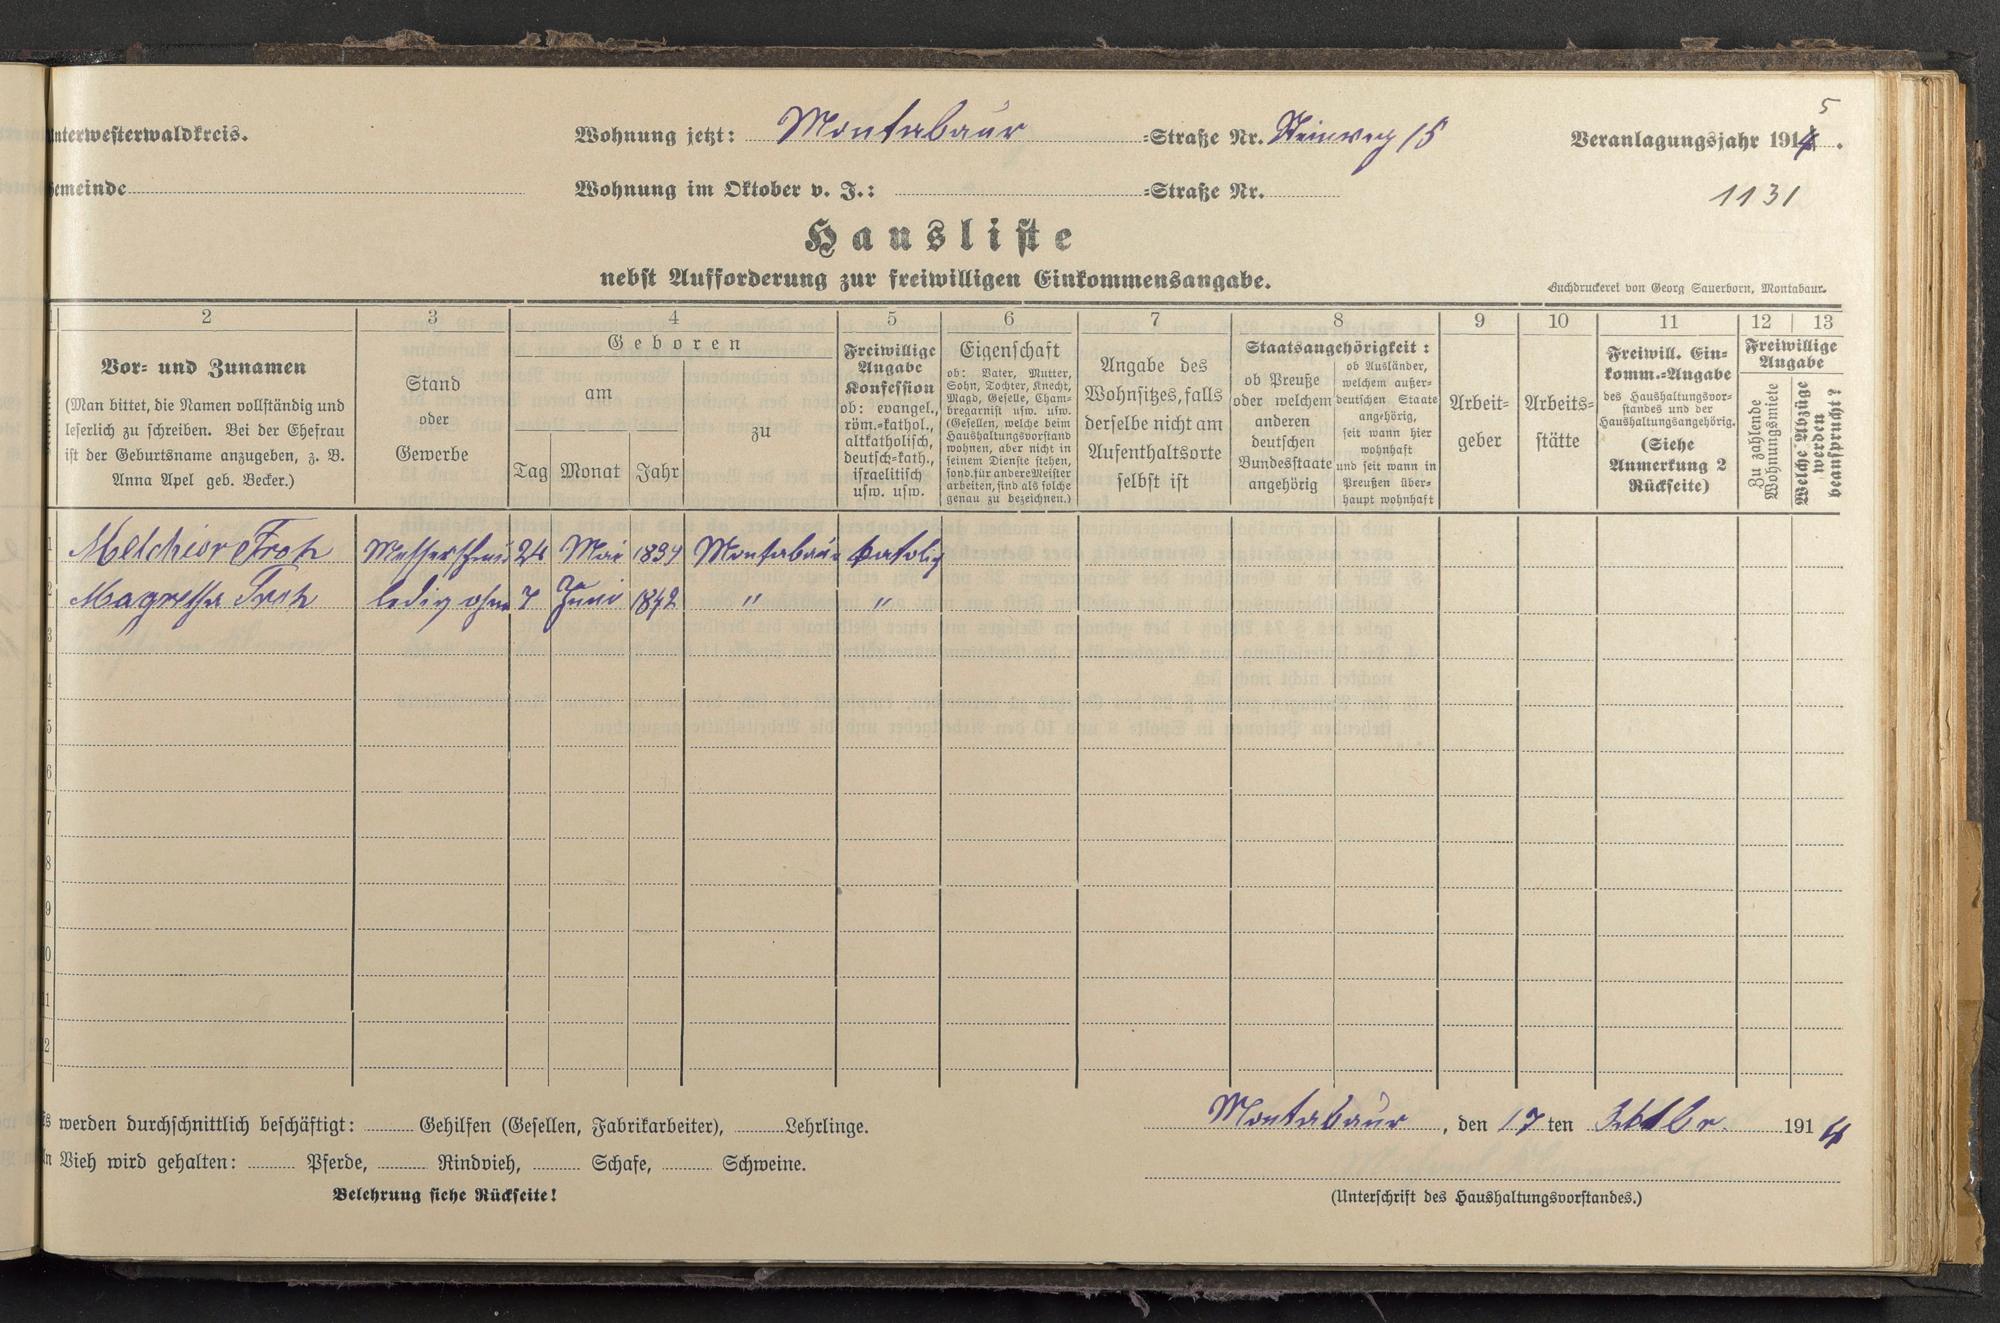 Unterwesterwaldkreis.
Wohnung jetzt: Montabaur =Straße Nr. Steinweg 15
Veranlagungsjahr 1914.
5
Gemeinde
Wohnung im Oktober v. J.: =Straße Nr.
1131
Hausliste
nebst Aufforderung zur freiwilligen Einkommensangabe.
Buchdruckerei von Georg Sauerborn, Montabaur.
2
Vor- und Zunamen
(Man bittet, die Namen vollständig und
leserlich zu schreiben. Bei der Ehefrau
ist der Geburtsname anzugeben, z. B.
Anna Apel geb. Becker.)
3
Stand
oder
Gewerbe
4
Geboren
am
Tag Monat Jahr
zu
5
Freiwillige
Angabe
Konfession
ob: evangel.,
röm.=kathol.,
altkatholisch,
deutsch=kath.,
israelitisch
usw. usw.
6
Eigenschaft
ob: Vater, Mutter,
Sohn, Tochter, Knecht,
Magd, Geselle, Cham-
bregarnist usw. usw.
(Gesellen, welche beim
Haushaltungsvorstand
wohnen, aber nicht in
seinem Dienste stehen,
sond. für andere Meister
arbeiten, sind als solche
genau zu bezeichnen.)
7
Angabe des
Wohnsitzes, falls
derselbe nicht am
Aufenthaltsorte
selbst ist
8
Staatsangehörigkeit:
ob Preuße
oder welchem
anderen
deutschen
Bundesstaate
angehörig
ob Ausländer,
welchem außer-
deutschen Staate
angehörig,
seit wann hier
wohnhaft
und seit wann in
Preußen über-
haupt wohnhaft
9
Arbeit-
geber
10
Arbeits-
stätte
11
Freiwill. Ein-
komm.=Angabe
des Haushaltungsvor-
standes und der
Haushaltungsangehörig.
(Siehe
Anmerkung 2
Rückseite)
12 13
Freiwillige
Angabe
Zu zahlende
Wohnungsmiete
Welche Abzüge
werden
beansprucht?
1 Melchior Froh 24 Mai 1834 Montabaur katolig
2 Magretha Froh ledig ohne 7 Juni 1842 " "
3
4
5
6
7
8
9
10
11
12
werden durchschnittlich beschäftigt: Gehilfen (Gesellen, Fabrikarbeiter), Lehrlinge.
Montabaur, den 17ten 1914
An Vieh wird gehalten: Pferde, Rindvieh, Schafe, Schweine.
Belehrung siehe Rückseite!
(Unterschrift des Haushaltungsvorstandes.)